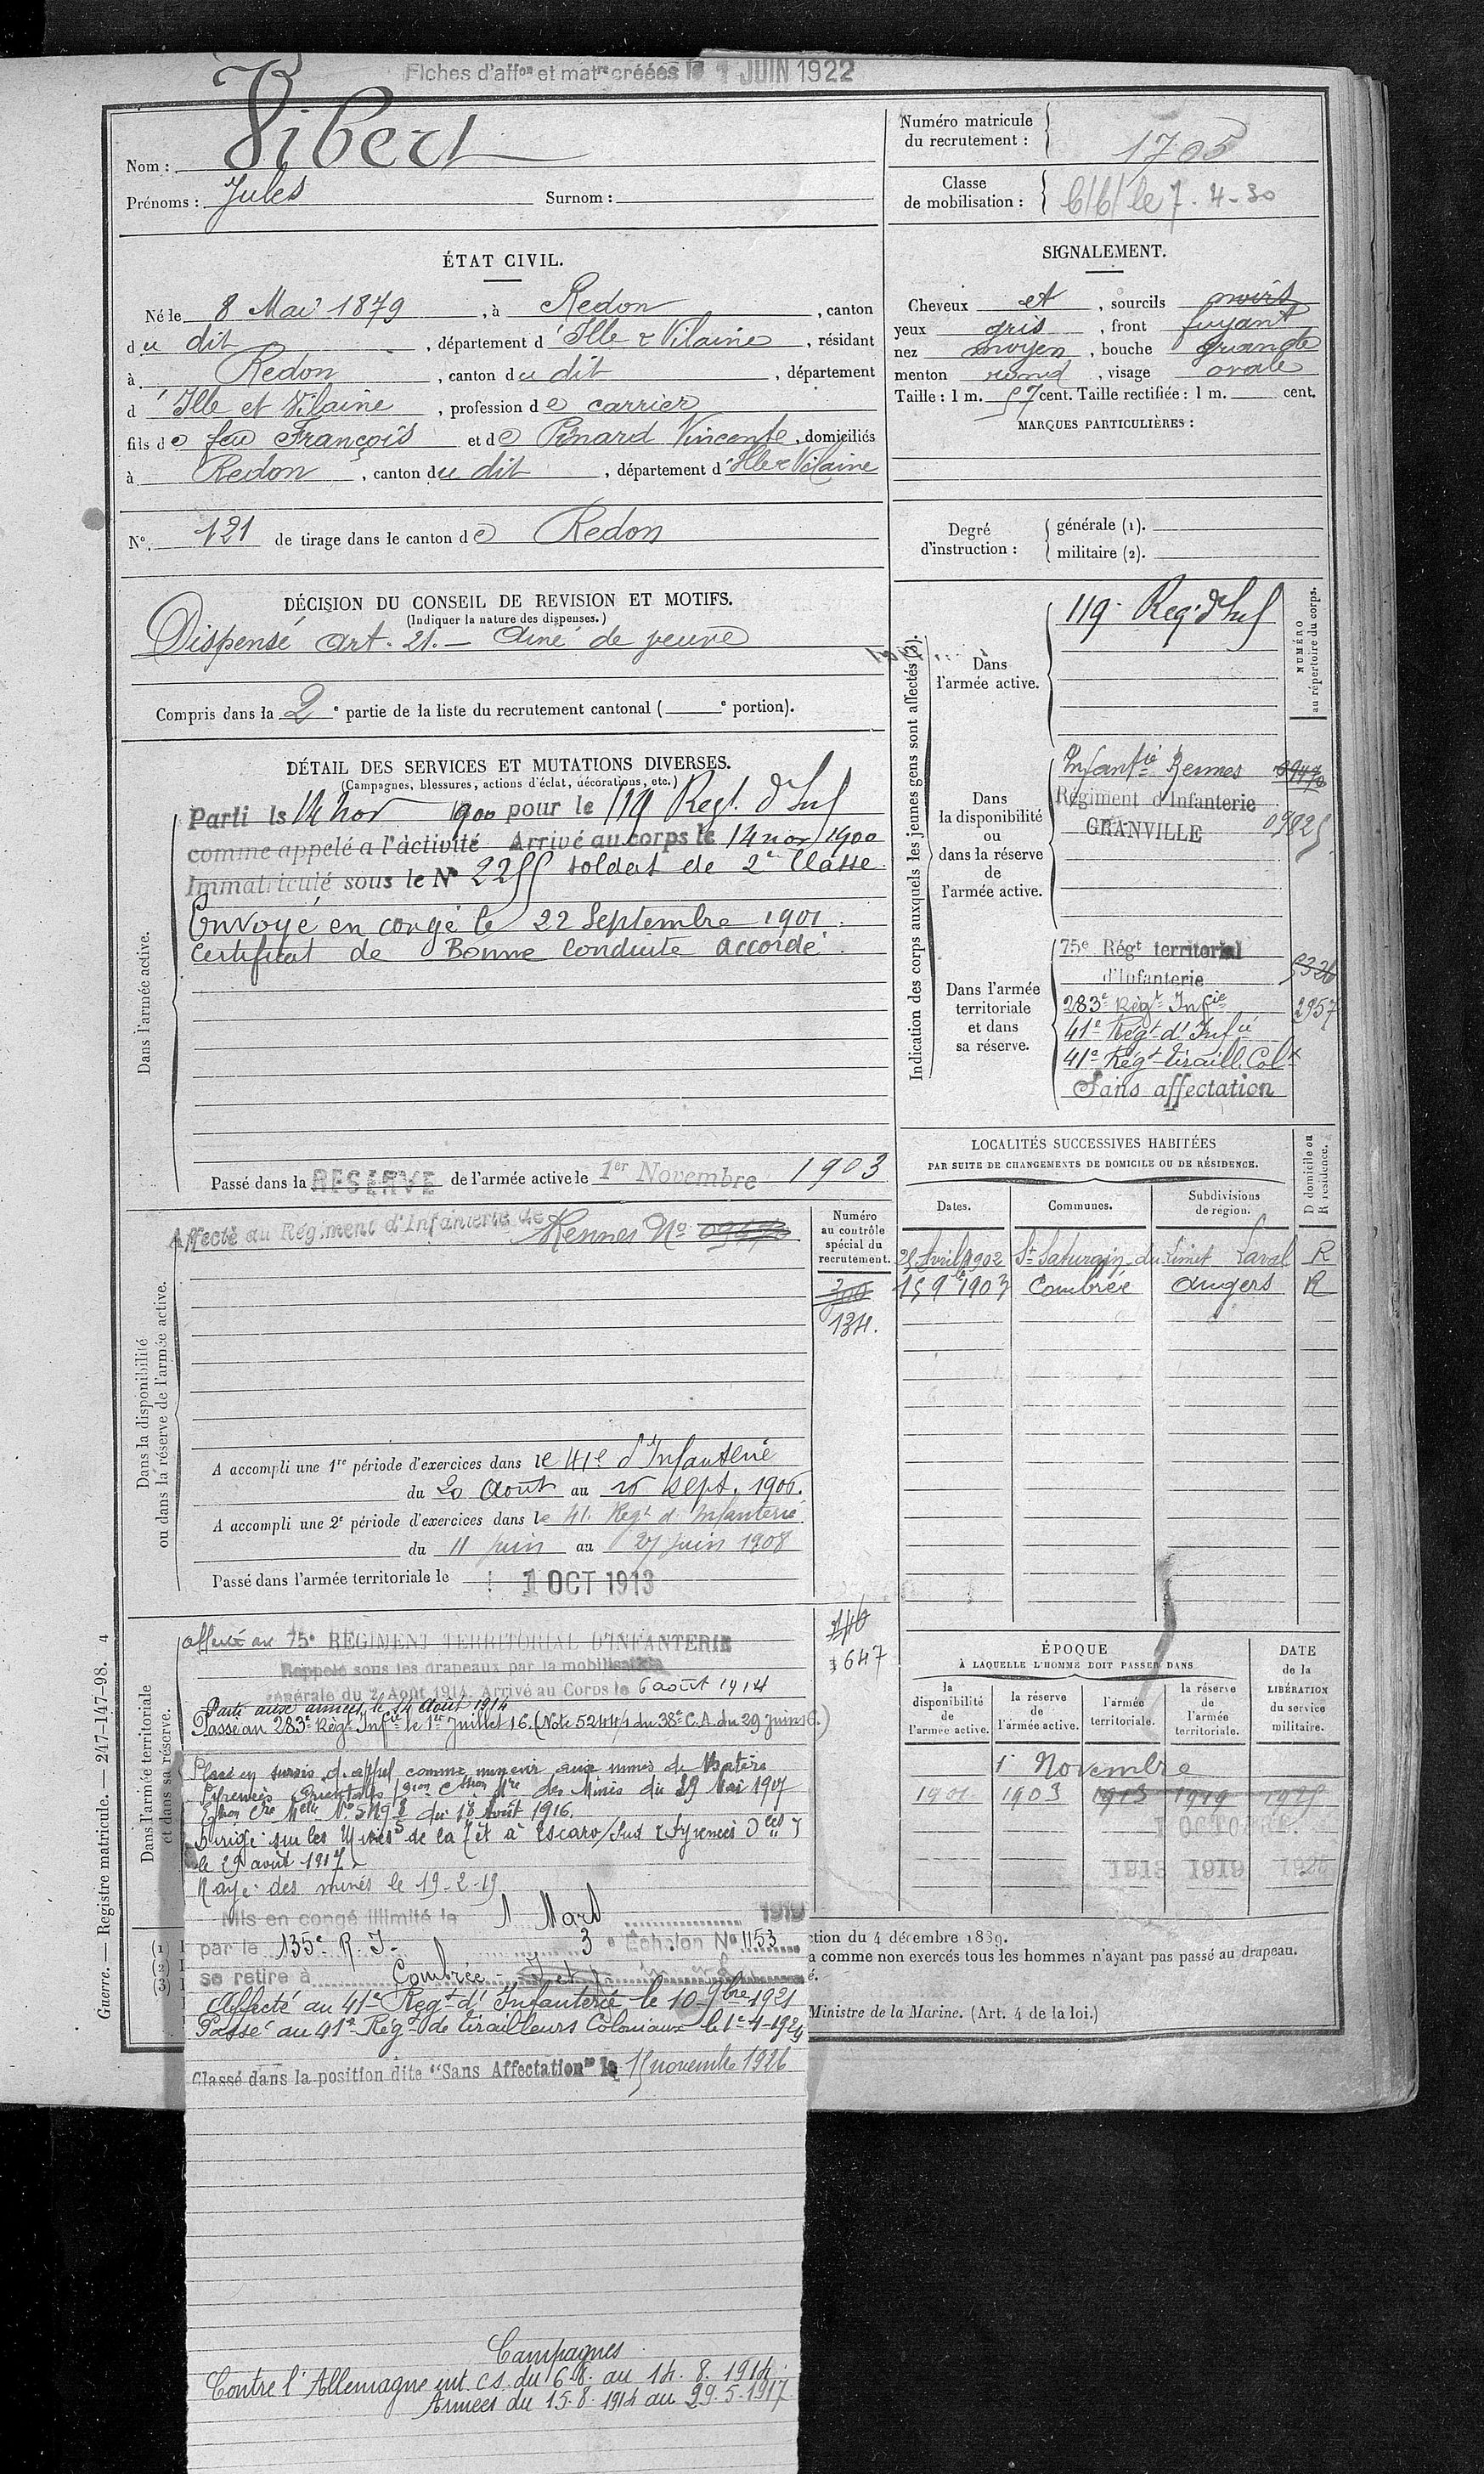 Fiches d'affon et matre créées le 1 JUIN 1922
Nom : Vibert
Prénoms : Jules Surnom :
Numéro matricule du recrutement : 1705
Classe de mobilisation : le 7-4-30
ÉTAT CIVIL.
Né le 8 Mai 1879, à Redon, canton
du dit, département d'Ille & Vilaine, résidant
à Redon, canton du dit, département
d'Ille et Vilaine, profession de carrier
fils de feu François et de Pinard Vincente, domiciliés
à Redon, canton du dit, département d'Ille & Vilaine
N° 121 de tirage dans le canton de Redon
SIGNALEMENT.
Cheveux et, sourcils noirs
yeux gris, front fuyant
nez moyen, bouche grande
menton rond, visage ovale
Taille : 1 m. 57 cent. Taille rectifiée : 1 m. cent.
MARQUES PARTICULIÈRES :
Degré d'instruction : générale (1).
militaire (2).
DÉCISION DU CONSEIL DE REVISION ET MOTIFS.
(Indiquer la nature des dispenses.)
Dispensé art. 21. — Ainé de veuve
Compris dans la 2e partie de la liste du recrutement cantonal ( e portion).
DÉTAIL DES SERVICES ET MUTATIONS DIVERSES.
(Campagnes, blessures, actions d'éclat, décorations, etc.)
Dans l'armée active.
Parti le 14 nov 1900 pour le 119 Regt. d'Inf
comme appelé a l'activité Arrivé au corps le 14 nov 1900
Immatriculé sous le N° 2255 soldat de 2e Classe
Envoyé en congé le 22 Septembre 1901.
Certificat de Bonne Conduite accordé.
Passé dans la RESERVE de l'armée active le 1er Novembre 1903
Indication des corps auxquels les jeunes gens sont affectés (3).
NUMÉRO au répertoire du corps.
Dans l'armée active.
119e Reg. d'Inf
Dans la disponibilité ou dans la réserve de l'armée active.
Infantie Rennes
Régiment d'Infanterie
GRANVILLE 09825
Dans l'armée territoriale et dans sa réserve.
75e Régt territorial
d'Infanterie 5326
283e Régt Infcie 2957
41e Régt d'Infie
41e Régt Tiraill. Colx
Sans affectation
Dans la disponibilité ou dans la réserve de l'armée active.
Affecté au Régiment d'Infanterie de Rennes N°
Numéro au contrôle spécial du recrutement.
300
134.
A accompli une 1re période d'exercices dans le 41e d'Infanterie
du 20 Août au 16 sept. 1906.
A accompli une 2e période d'exercices dans le 41. Regt d'Infanterie
du 11 juin au 27 juin 1908
Passé dans l'armée territoriale le 1 OCT 1913
LOCALITÉS SUCCESSIVES HABITÉES
PAR SUITE DE CHANGEMENTS DE DOMICILE OU DE RÉSIDENCE.
Dates. Communes. Subdivisions de région. D domicile ou R résidence.
25 Avril 1902 St Saturnin du Limet Laval R
15 9bre 1903 Combrée Angers R
Dans l'armée territoriale et dans sa réserve.
Affecté au 75e RÉGIMENT TERRITORIAL D'INFANTERIE
Rappelé sous les drapeaux par la mobilisation
générale du 2 Août 1914. Arrivé au Corps le 6 août 1914
Parti aux armées le 14 Août 1914
Passé au 283e Régt Infcie le 1er Juillet 16. (Note 5244/1 du 38e C.A. du 29 juin 16.)
140
647
Placé en sursis d'appel comme mineur aux mines de
Pyrénées Orientales Mre des Mines du 29 Mai 1917
du 18 Août 1916.
Dirigé sur les Mines de la Têt à Escaro/Sud (Pyrénées Ole)
le 29 août 1917
Rayé des mines le 19-2-19
Mis en congé illimité le 1 Mars 1919
par le 135e R. I. 3e Echelon N° 1153
se retire à Combrée
Affecté au 41e Régt d'Infanterie le 10 9bre 1921
Passé au 41e Régt de Tirailleurs Coloniaux le 1e-4-1924
Classé dans la position dite "Sans Affectation" le 15 novembre 1926
ÉPOQUE
À LAQUELLE L'HOMME DOIT PASSER DANS
DATE de la LIBÉRATION du service militaire.
la disponibilité de l'armée active. la réserve de l'armée active. l'armée territoriale. la réserve de l'armée territoriale.
1er Novembre
1901 1903 1913 1919 1925
1 OCTOBRE.
1913 1919 192
(1)
(2)
(3)
ction du 4 décembre 1889.
a comme non exercés tous les hommes n'ayant pas passé au drapeau.
é.
Ministre de la Marine. (Art. 4 de la loi.)
Guerre. — Registre matricule. — 247-147-98. 4
Campagnes
Contre l'Allemagne int. cs. du 6.8. au 14. 8. 1914.
Armées du 15.8.1914 au 29.5.1917